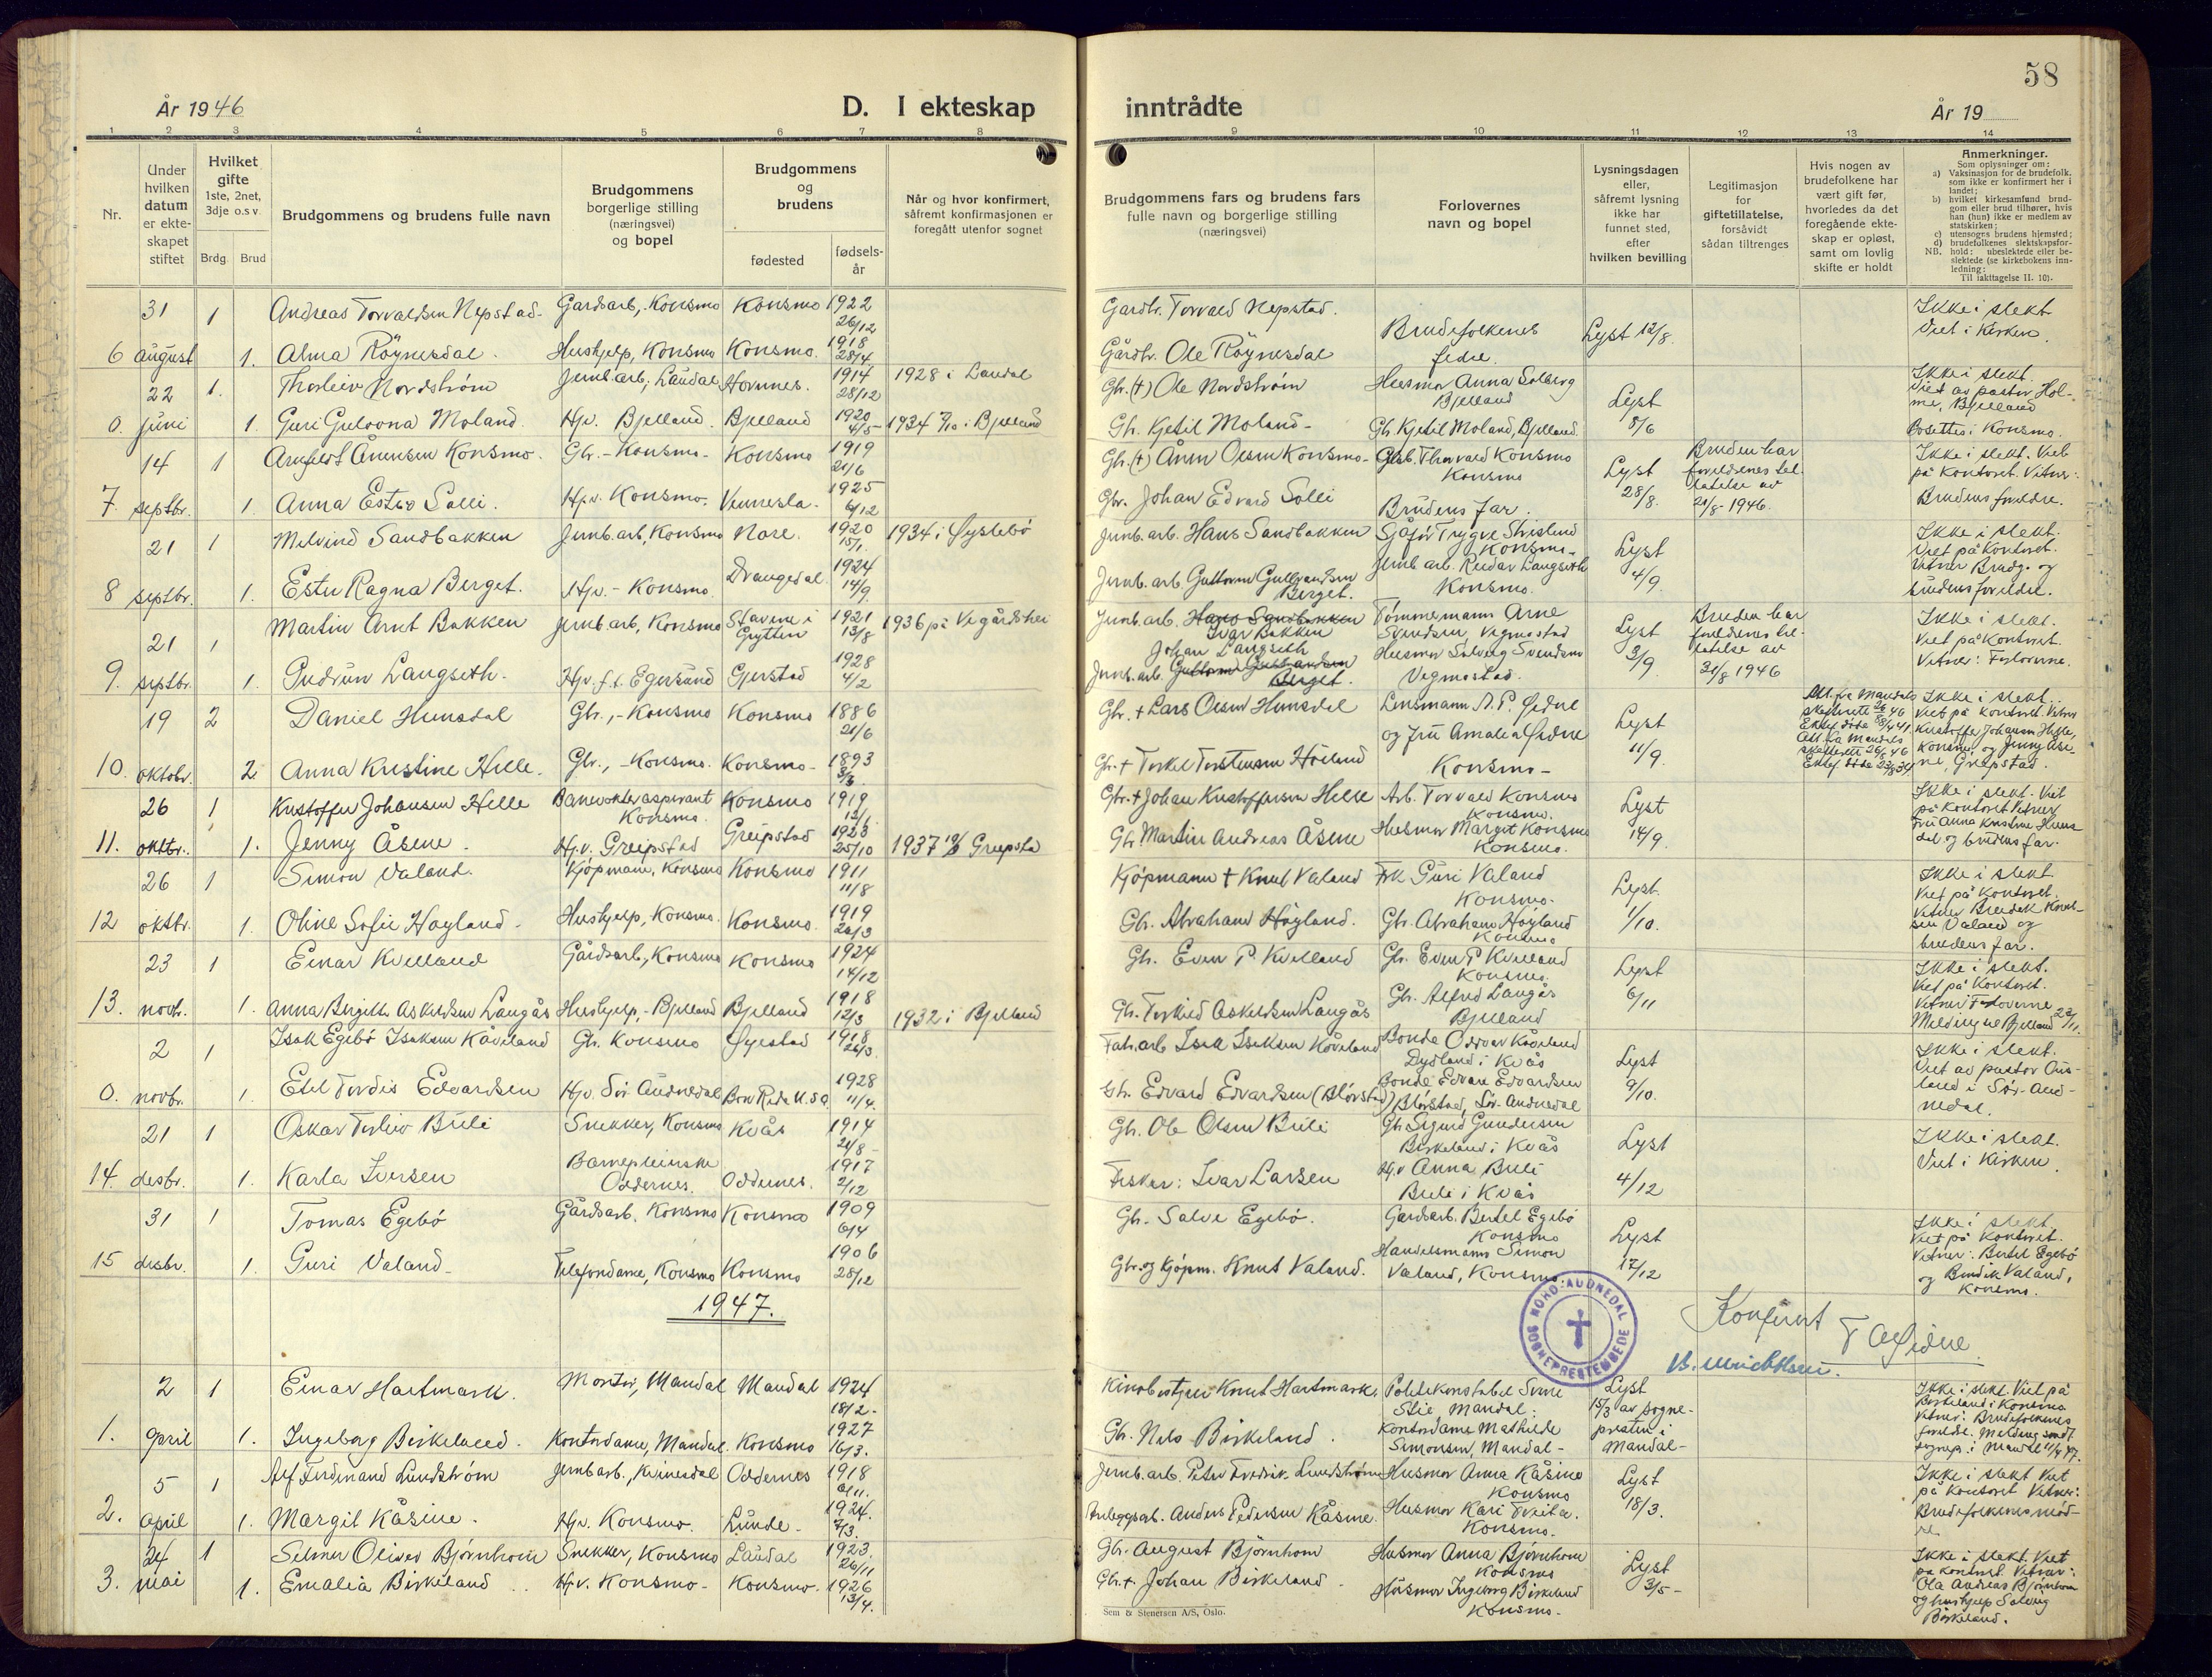 58
År 1946
D. I ekteskap
inntrådte
År 19
1 2 3 4 5 6 7 8 9 10 11 12 13 14
Nr.
Under hvilken datum er ekteskapet stiftet
Hvilket gifte 1ste, 2net, 3dje o.s.v.
Brdg.
Brud
Brudgommens og brudens fulle navn
Brudgommens borgerlige stilling (næringsvei) og bopel
Brudgommens og brudens
fødested
fødsels-år
Når og hvor konfirmert, såfremt konfirmasjonen er foregått utenfor sognet
Brudgommens fars og brudens fars fulle navn og borgerlige stilling (næringsvei)
Forlovernes navn og bopel
Lysningsdagen eller, såfremt lysning ikke har funnet sted, efter hvilken bevilling
Legitimasjon for giftetillatelse, forsåvidt sådan tiltrenges
Hvis nogen av brudefolkene har vært gift før, hvorledes da det foregående ekteskap er opløst, samt om lovlig skifte er holdt
Anmerkninger.
Som oplysninger om:
a) Vaksinasjon for de brudefolk, som ikke er konfirmert her i landet;
b) hvilket kirkesamfund brudgom eller brud tilhører, hvis han (hun) ikke er medlem av statskirken;
c) utensogns brudens hjemsted;
d) brudefolkenes slektskapsforhold: ubeslektede eller beslektede (se kirkebokens innledning:
NB. Til iakttagelse II. 10).
31 1 Andreas Torvaldsen Nepstad Gardsarb., Konsmo Konsmo 1922 26/12 Gardbr. Torvald Nepstad. Brudefolkenes fedre. Lyst 12/8. Ikke i slekt Viet i Kirken.
6 august 1. Alma Röynesdal. Hushjelp, Konsmo Konsmo. 1918 28/4 Gårdbr. Ole Röynesdal
22 1. Thorleiv Nordström Jernb.arb., Laudal Hornnes. 1914 28/12 1928 i Laudal Gbr. (†) Ole Nordström Husmor Anna Solberg Bjelland Lyst 8/6 Ikke i slekt. Viet av pastor Holme, Bjelland
0. juni 1. Guri Gulovna Moland. Hjv. Bjelland. Bjelland 1920 4/5 1934 7/10 i Bjelland Gb. Kjetil Moland- Gb. Kjetil Moland, Bjelland. Bosettes i Konsmo.
14 1 Arnfeldt Ånensen Konsmo. Gbr. - Konsmo - Konsmo 1919 21/6 Gbr. (†) Ånen Olsen Konsmo - Gbr. Thorvald Konsmo Konsmo Lyst 28/8. Bruden har foreldrenes tillatelse av 21/8-1946. Ikke i slekt. Viet på kontoret. Vitner: Brudens foreldre.
7 septbr. 1. Anna Ester Solli. Hjv. Konsmo. Vennesla. 1925 6/12 Gbr. Johan Edvard Solli Brudens far.
21 1 Melvind Sandbakken Jernb.arb, Konsmo Nore. 1920 15/1. 1934 i Øyslebö Jernb.arb. Hans Sandbakken Sjåför Trygve Stuisland Konsmo - Lyst 4/9. Ikke i slekt. Viet på kontoret. Vitner Brudg. og brudens foreldre.
8 septbr. 1. Ester Ragna Berget. Hjv. - Konsmo. Drangedal 1924 14/9 Jernb.arb Guttorm Gulbrandsen Berget. Jernb.arb. Reidar Langseth Konsmo.
21 1 Martin Arnt Bakken Jernb.arb, Konsmo Stavene i Grytten 1921 13/8 1936 på Vegårdshei Jernb.arb. Hans Sandbakken Ivar Bakken Tømmermann Arne Svendsen, Vegmostad Lyst 3/9. Bruden har foreldrenes tillatelse av 31/8 1946 Ikke i slekt. Viet på kontoret. Vitner: Forloverne.
9. septbr. 1. Gudrun Langseth. Hjv. f.t. Egersund Gjerstad 1928 4/2 Johan Langseth Jernb.arb. Guttorm Gulbrandsen Berget. Husmor Solveig Svendsen Vegmostad.
19 2 Daniel Hunsdal Gbr., - Konsmo Konsmo 1886 21/6 Gbr. † Lars Olsen Hunsdal Lensmann A. P. Øidne og fru Amalia Øidne Konsmo - Lyst 11/9. Att. fra Mandals skifterett 26/46 Att. fra Mandals skifterett Ikke i slekt. Viet på kontoret. Vitner Kristoffer Johansen Helle, Konsmo, og Jenny Åsene, Greipstad.
10. oktobr. 2 Anna Kristine Helle. Gbr., - Konsmo. Konsmo - 1893 Gbr. † Torkel Torstensen Höiland
26 1 Kristoffer Johansen Helle Banevokteraspirant Konsmo. Konsmo 1919 Gbr. † Johan Kristoffersen Helle Arb. Torvald Konsmo Konsmo. Lyst 14/9. Ikke i slekt. Viet på kontoret. Vitner Fru Anna Kristine Hunsdal og brudens far.
11. oktbr. 1. Jenny Åsene. Hjv. Greipstad Greipstad 1923 25/10 1937 Greipstad Gbr Martin Andreas Åsene Husmor Margit Konsmo Konsmo.
26 1 Simon Valand. Kjöpmann, Konsmo Konsmo 1911 11/8 Kjöpmann † Knut Valand Frk Guri Valand Konsmo. Lyst. 1/10. Ikke i slekt. Viet på kontoret. Vitner Bendik Knutsen Valand og brudens far.
12 oktbr. 1. Oline Sofie Høyland. Hushjelp, Konsmo. Konsmo. 1919 20/3 Gbr. Abraham Høyland. Gbr. Abraham Høyland Konsmo
23 1 Einar Kvelland Gårdsarb, Konsmo Konsmo 1924 14/12 Gb. Even P Kvelland Gb. Even P Kvelland Konsmo. Lyst 6/11 Ikke i slekt. Viet på kontoret. Vitner Forloverne. Melding ne Bjelland 23/11.
13. novbr. 1. Anna Birgitte Askildsen Langås Hushjelp, - Bjelland Bjelland 1918 12/3 1932 i Bjelland Gb. Terkild Askildsen Langås Gb. Alfred Langås Bjelland
2 1 Isak Egebö Isaksen Kåveland Gb. Konsmo Øyestad 1918 26/3. Fabr.arb Isak Isaksen Kåveland Bonde Oddvar Kåveland Dydland i Kvås Lyst 9/10. Ikke i slekt. Viet av pastor Ausland i Sör-Audnedal.
0. novbr. 1. Etel Tordis Edvardsen Hjv. Sör Audnedal Bon Rida U.S.A. 1928 11/4. Gb. Edvard Edvardsen (Blörstad) Bonde Edvard Edvardsen Blörstad, Sör-Audnedal
21 1 Oskar Torleiv Büli Snekker, Konsmo Kvås 1914 21/8 Gb. Ole Olsen Büli Gb Sigurd Gundersen Birkeland i Kvås Lyst 4/12 Ikke i slekt. Viet i Kirken.
14. desbr. 1. Karla Iversen Barnepleierske Oddernes. Oddernes. 1917 2/12 Fisker: Ivar Larsen Hjv Anna Büli Büli i Kvås
31 1 Tomas Egebö Gårdsarb. Konsmo Konsmo 1909 6/4 Gb. Salve Egebö. Gardsarb. Bertel Egebö Konsmo Lyst 12/12 Ikke i slekt. Viet på kontoret. Vitner: Bertel Egebö og Bendik Valand, Konsmo.
15 desbr. 1. Guri Valand - Telefondame, Konsmo Konsmo 1906 28/12 Gbr. og Kjöpm. Knut Valand. Handelsmann Simon Valand, Konsmo.
1947.
NORD-AUDNEDAL SOGNEPRESTEMBEDE
Konferert
T A Øidne
2 1 Einar Hartmark. Montör, Mandal Mandal 1924 18/2. Kinobestyrer Knut Hartmark. Politikonstabel Sverre Stie Mandal. Lyst 15/3 av sogne-presten i Mandal - Ikke i slekt. Viet på Birkeland i Konsmo Vitner: Brudefolkenes foreldre. Melding sendt sognep. i Mandal 11/4 47.
1. april 1. Ingeborg Birkeland. Kontordame, Mandal. Konsmo 1927 16/3. Gb. Nils Birkeland. Kontordame Mathilde Simonsen, Mandal -
5 1 Alf Ferdinand Lundström Jernb arb., Kvinesdal Oddernes 1918 Jernb.arb. Peter Fredrik Lundström Husmor Anna Kåsine Konsmo Lyst 18/3. Ikke i slekt Viet på kontoret Vitner: Brudefolkenes mödre
2. april 1. Margit Kåsine. Hjv. Konsmo. Lunde. 1924. 7/3. Anleggsarb. Anders Pedersen Kåsine. Husmor Kari Tveita. Konsmo.
24 1 Selmer Oliver Björnhom Snekker, Konsmo Laudal 1923. 26/11 Gbr. August Björnhom Husmor Anna Björnhom Konsmo Lyst 3/5 - Ikke i slekt. Viet på kontoret. Vitner: Ola Andreas Björnhom og hushjelp Solveig Birkeland.
3. mai 1. Emalia Birkeland Hjv. Konsmo - Konsmo. 1926 13/4. Gbr. † Johan Birkeland. Husmor Ingeborg Birkeland Konsmo.
Sem & Stenersen A/S, Oslo.